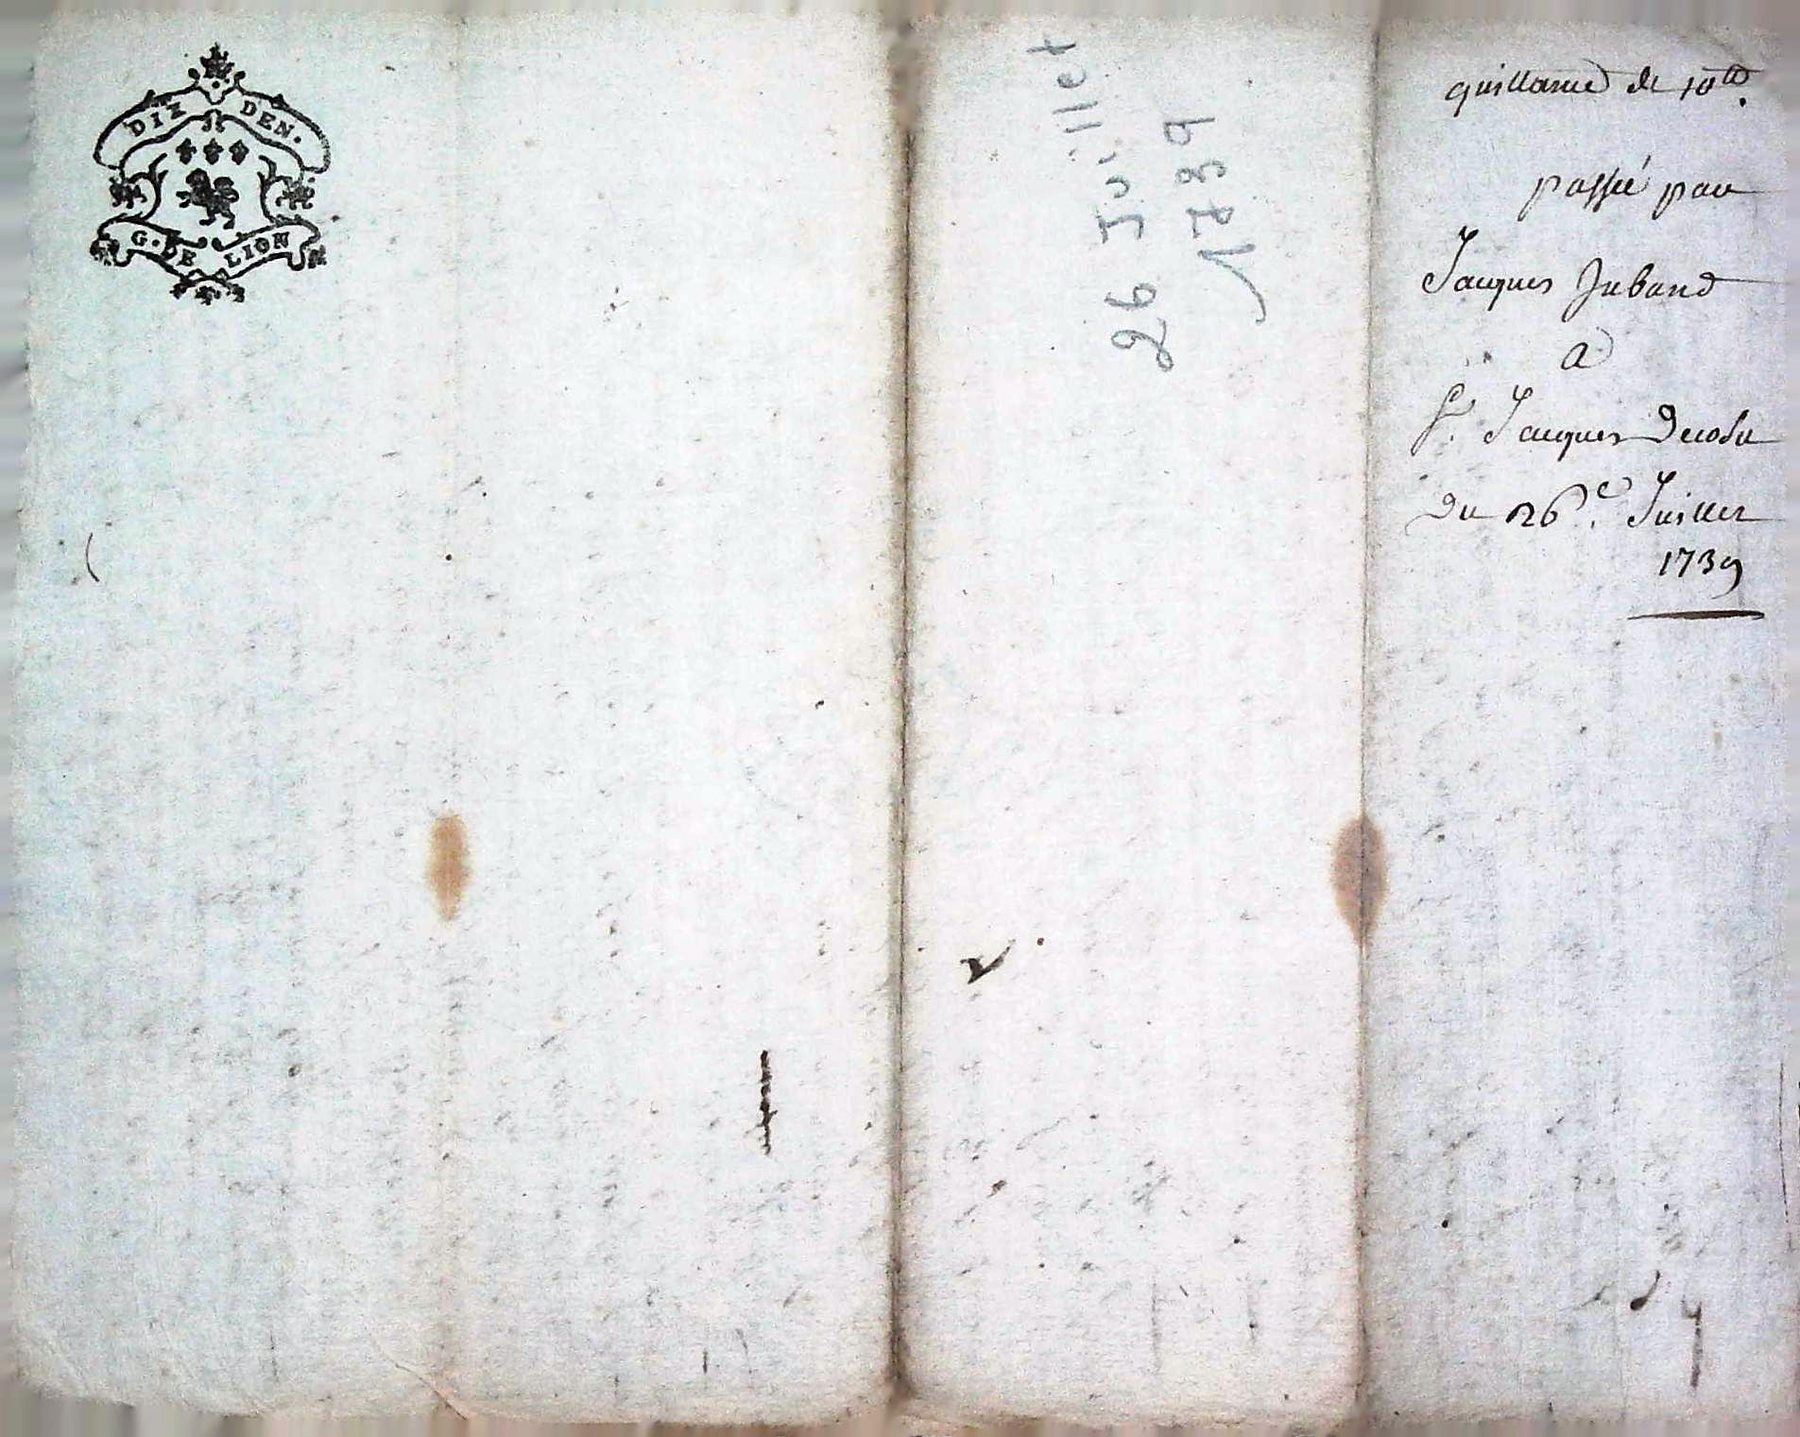 DIX DEN.
G. DE LION
26 Juillet
1739
quittance de 10ᵗᵗ.
passée par
Jacques Juband
a
Sr. Jacques Decosu
Du 26e. Juillet
1739